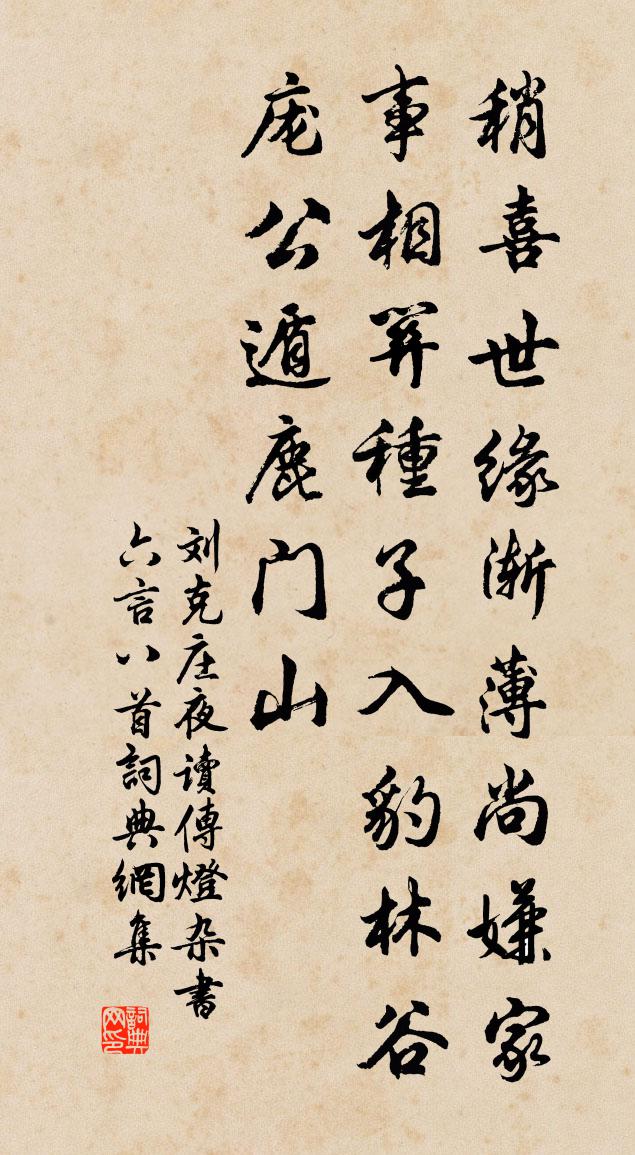 稍喜世缘渐薄尚嫌家
事相关種子入豹林谷
庞公遁鹿门山
刘克庄夜讀傳燈杂書
六言八首詞典網集
詞典网印